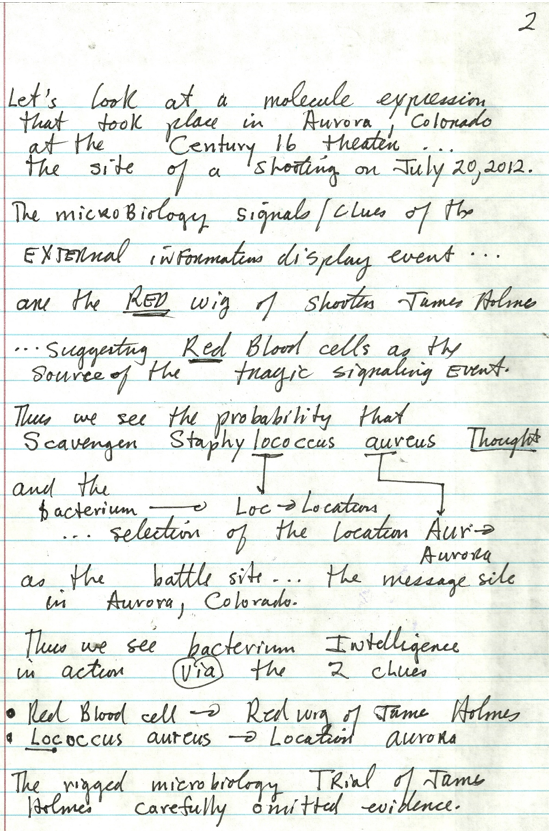 2
Let's look at a molecule expression
that took place in Aurora, Colorado
at the Century 16 theater ...
the site of a shooting on July 20, 2012.
The microBiology signals/clues of the
EXTERNAL information display event ...
are the RED wig of shooter James Holmes
... suggesting Red Blood cells as the
source of the tragic signaling EVENT.
Thus we see the probability that
Scavenger Staphylococcus aureus Thought
and the
bacterium → Loc → Location
... selection of the location Aur →
Aurora
as the battle site... the message site
in Aurora, Colorado.
Thus we see bacterium Intelligence
in action Via the 2 clues
• Red Blood cell → Red wig of Jame Holmes
• Lococcus aureus → Location aurora
The rigged microbiology TRial of Jame
Holmes carefully omitted evidence.